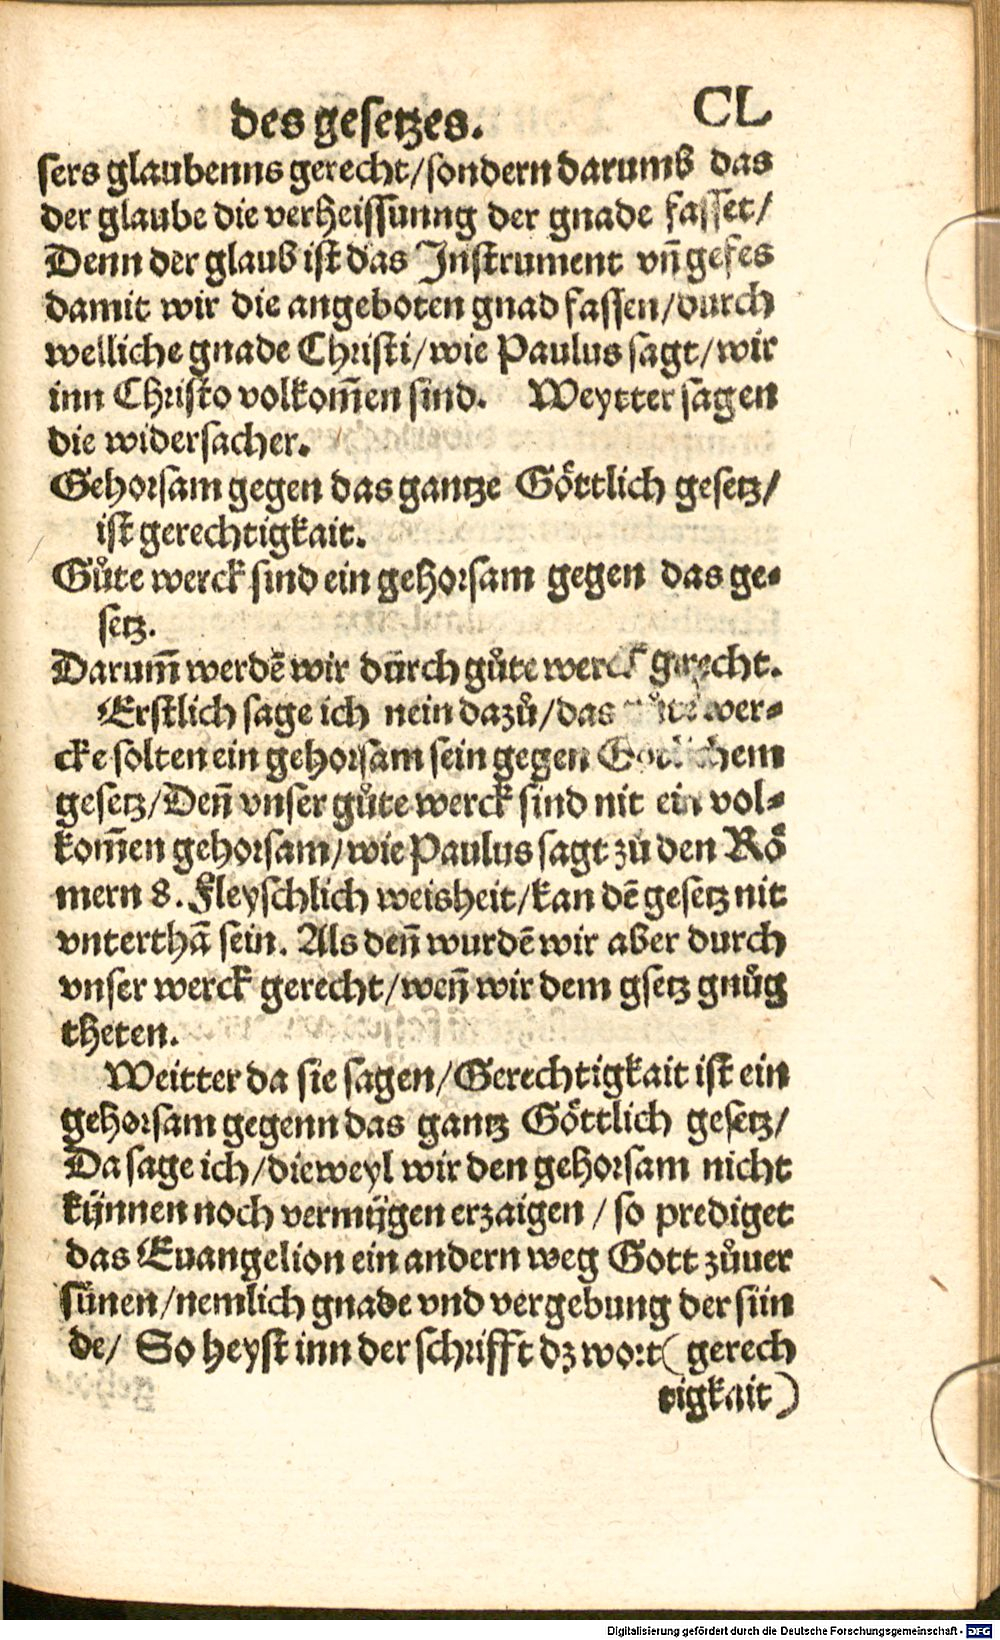 des gesetzes. CL
sers glaubenns gerecht/sondern darumb das
der glaube die verheissunng der gnade fasset/
Denn der glaub ist das Instrument vn̄ gefes
damit wir die angeboten gnad fassen/durch
welliche gnade Christi/wie Paulus sagt/wir
inn Christo volkom̄en sind. Weytter sagen
die widersacher.
Gehorsam gegen das gantze Göttlich gesetz/
ist gerechtigkait.
Gůte werck sind ein gehorsam gegen das ge-
setz.
Darum̄ werdē wir durch gůte werck gerecht.
Erstlich sage ich nein dazů/das gůte wer-
cke solten ein gehorsam sein gegen Götlichem
gesetz/Den̄ vnser gůte werck sind nit ein vol-
kom̄en gehorsam/wie Paulus sagt zů den Rö
mern 8. Fleyschlich weisheit/kan dē gesetz nit
vnterthā sein. Als den̄ wurdē wir aber durch
vnser werck gerecht/wen̄ wir dem gsetz gnůg
theten.
Weitter da sie sagen/Gerechtigkait ist ein
gehorsam gegenn das gantz Göttlich gesetz/
Da sage ich/dieweyl wir den gehorsam nicht
künnen noch vermügen erzaigen/so prediget
das Euangelion ein andern weg Gott zůuer
sünen/nemlich gnade vnd vergebung der sün
de/ So heyst inn der schrifft dz wort( gerech
tigkait)
Digitalisierung gefördert durch die Deutsche Forschungsgemeinschaft - DFG